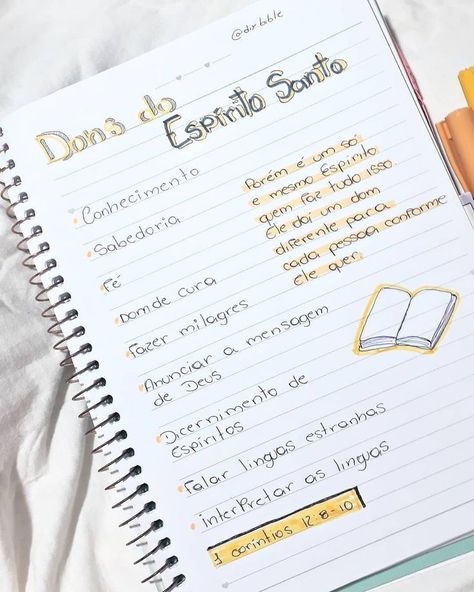 @dir.bible
Dons do
Espírito Santo
Conhecimento
Sabedoria
Fé
Dom de cura
Fazer milagres
Anunciar a mensagem
de Deus
Dicernimento de
Espíritos
Falar linguas estranhas
interpretar as linguas
Porém é um só
e mesmo Espírito
quem faz tudo isso.
Ele dá um dom
diferente para
cada pessoa conforme
ele quer.
1 coríntios 12:8-10